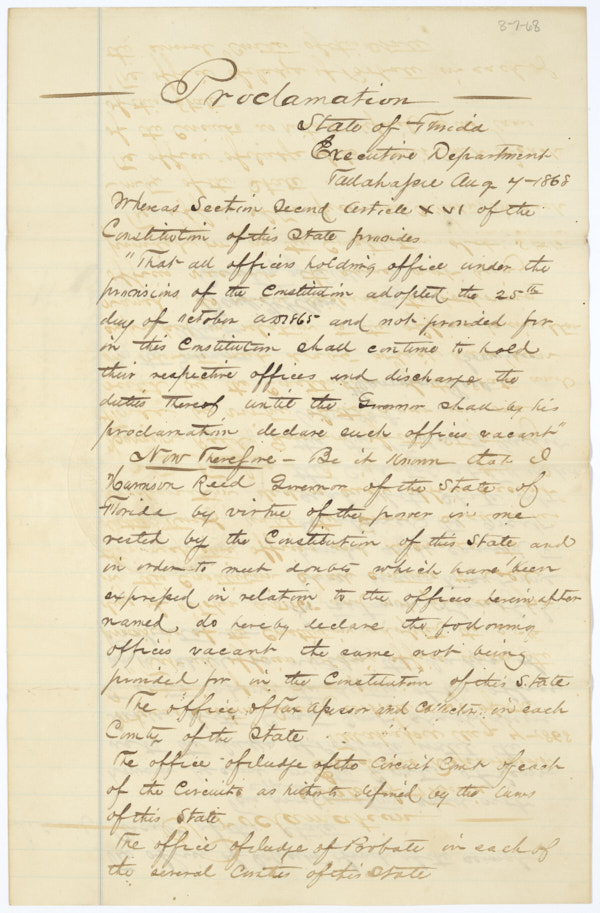 8-7-68
Proclamation
State of Florida
Executive Department
Tallahassee Aug 7-1868
Whereas Section Second Article XVI of the
Constitution of this State provides
"That all officers holding office under the
provisions of the Constitution adopted the 25th
day of October AD 1865 and not provided for
in this Constitution shall continue to hold
their respective offices and discharge the
duties thereof until the Governor shall by his
proclamation declare such offices vacant"
Now Therefore - Be it Known that I
Harrison Reed Governor of the State of
Florida by virtue of the power in me
vested by the Constitution of this State and
in order to meet doubts which have been
expressed in relation to the offices herein after
named, do hereby declare the following
offices vacant the same not being
provided for in the Constitution of this State
The office of Tax Assessor and Collector in each
County of the State
The office of Judge of the Circuit Court of each
of the Circuits as hitherto defined by the laws
of this State
The office of Judge of Probate in each of
the several Counties of this State